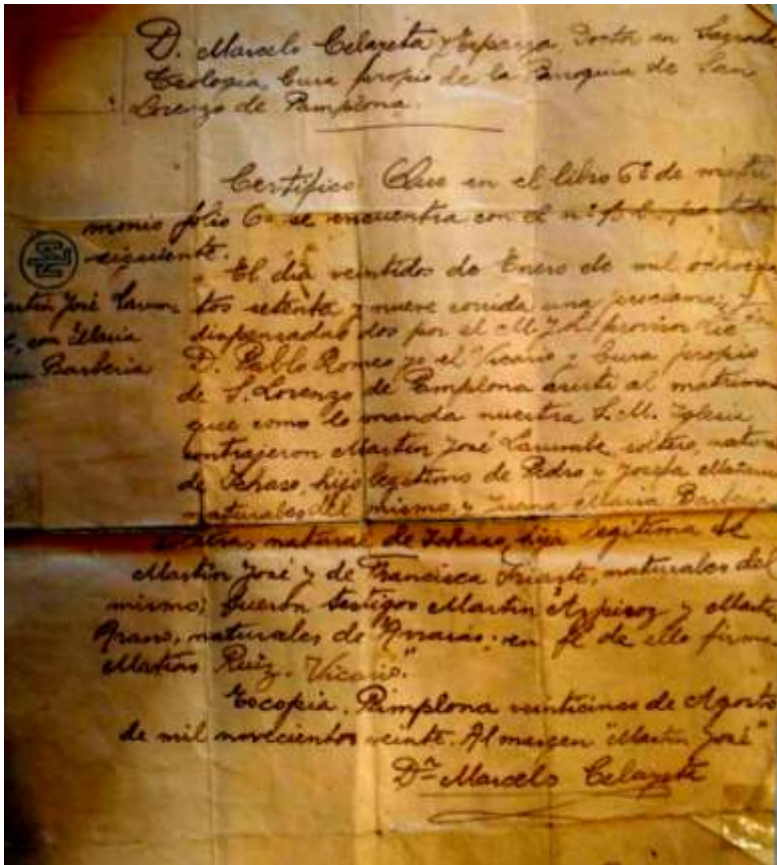 D. Marcelo Celayeta y Esparza Doctor en Sagrada
Teologia, Cura propio de la Parroquia de San
Lorenzo de Pamplona.
Certifico Que en el libro 6º de matri
monio folio 6º se encuentra con el nº partida
siguiente.
"El dia veintidos de Enero de mil ochocien
tos setenta y nueve corrida una proclama, y
dispensadas dos por el M. Y. S. provisor
D. Pablo Romeo yo el Vicario y Cura propio
de S. Lorenzo de Pamplona asisti al matrimon
que como lo manda nuestra S. M. Iglesia
contrajeron Martin José Larumbe, soltero, natural
de hijo legitimo de Pedro y Josefa
naturales del mismo, y Juana Maria Barberia
soltera, natural de hija legitima de
Martin José y de Francisca Iriarte, naturales del
mismo; fueron testigos Martin Azpiroz y Martin
naturales de Arraras; en fe de ello firmo
Matias Ruiz. Vicario."
Es copia. Pamplona veinticinco de Agosto
de mil novecientos veinte. Al margen "Martin José"
Dn Marcelo Celayeta
Martin José Larum
e, con Maria
Barberia